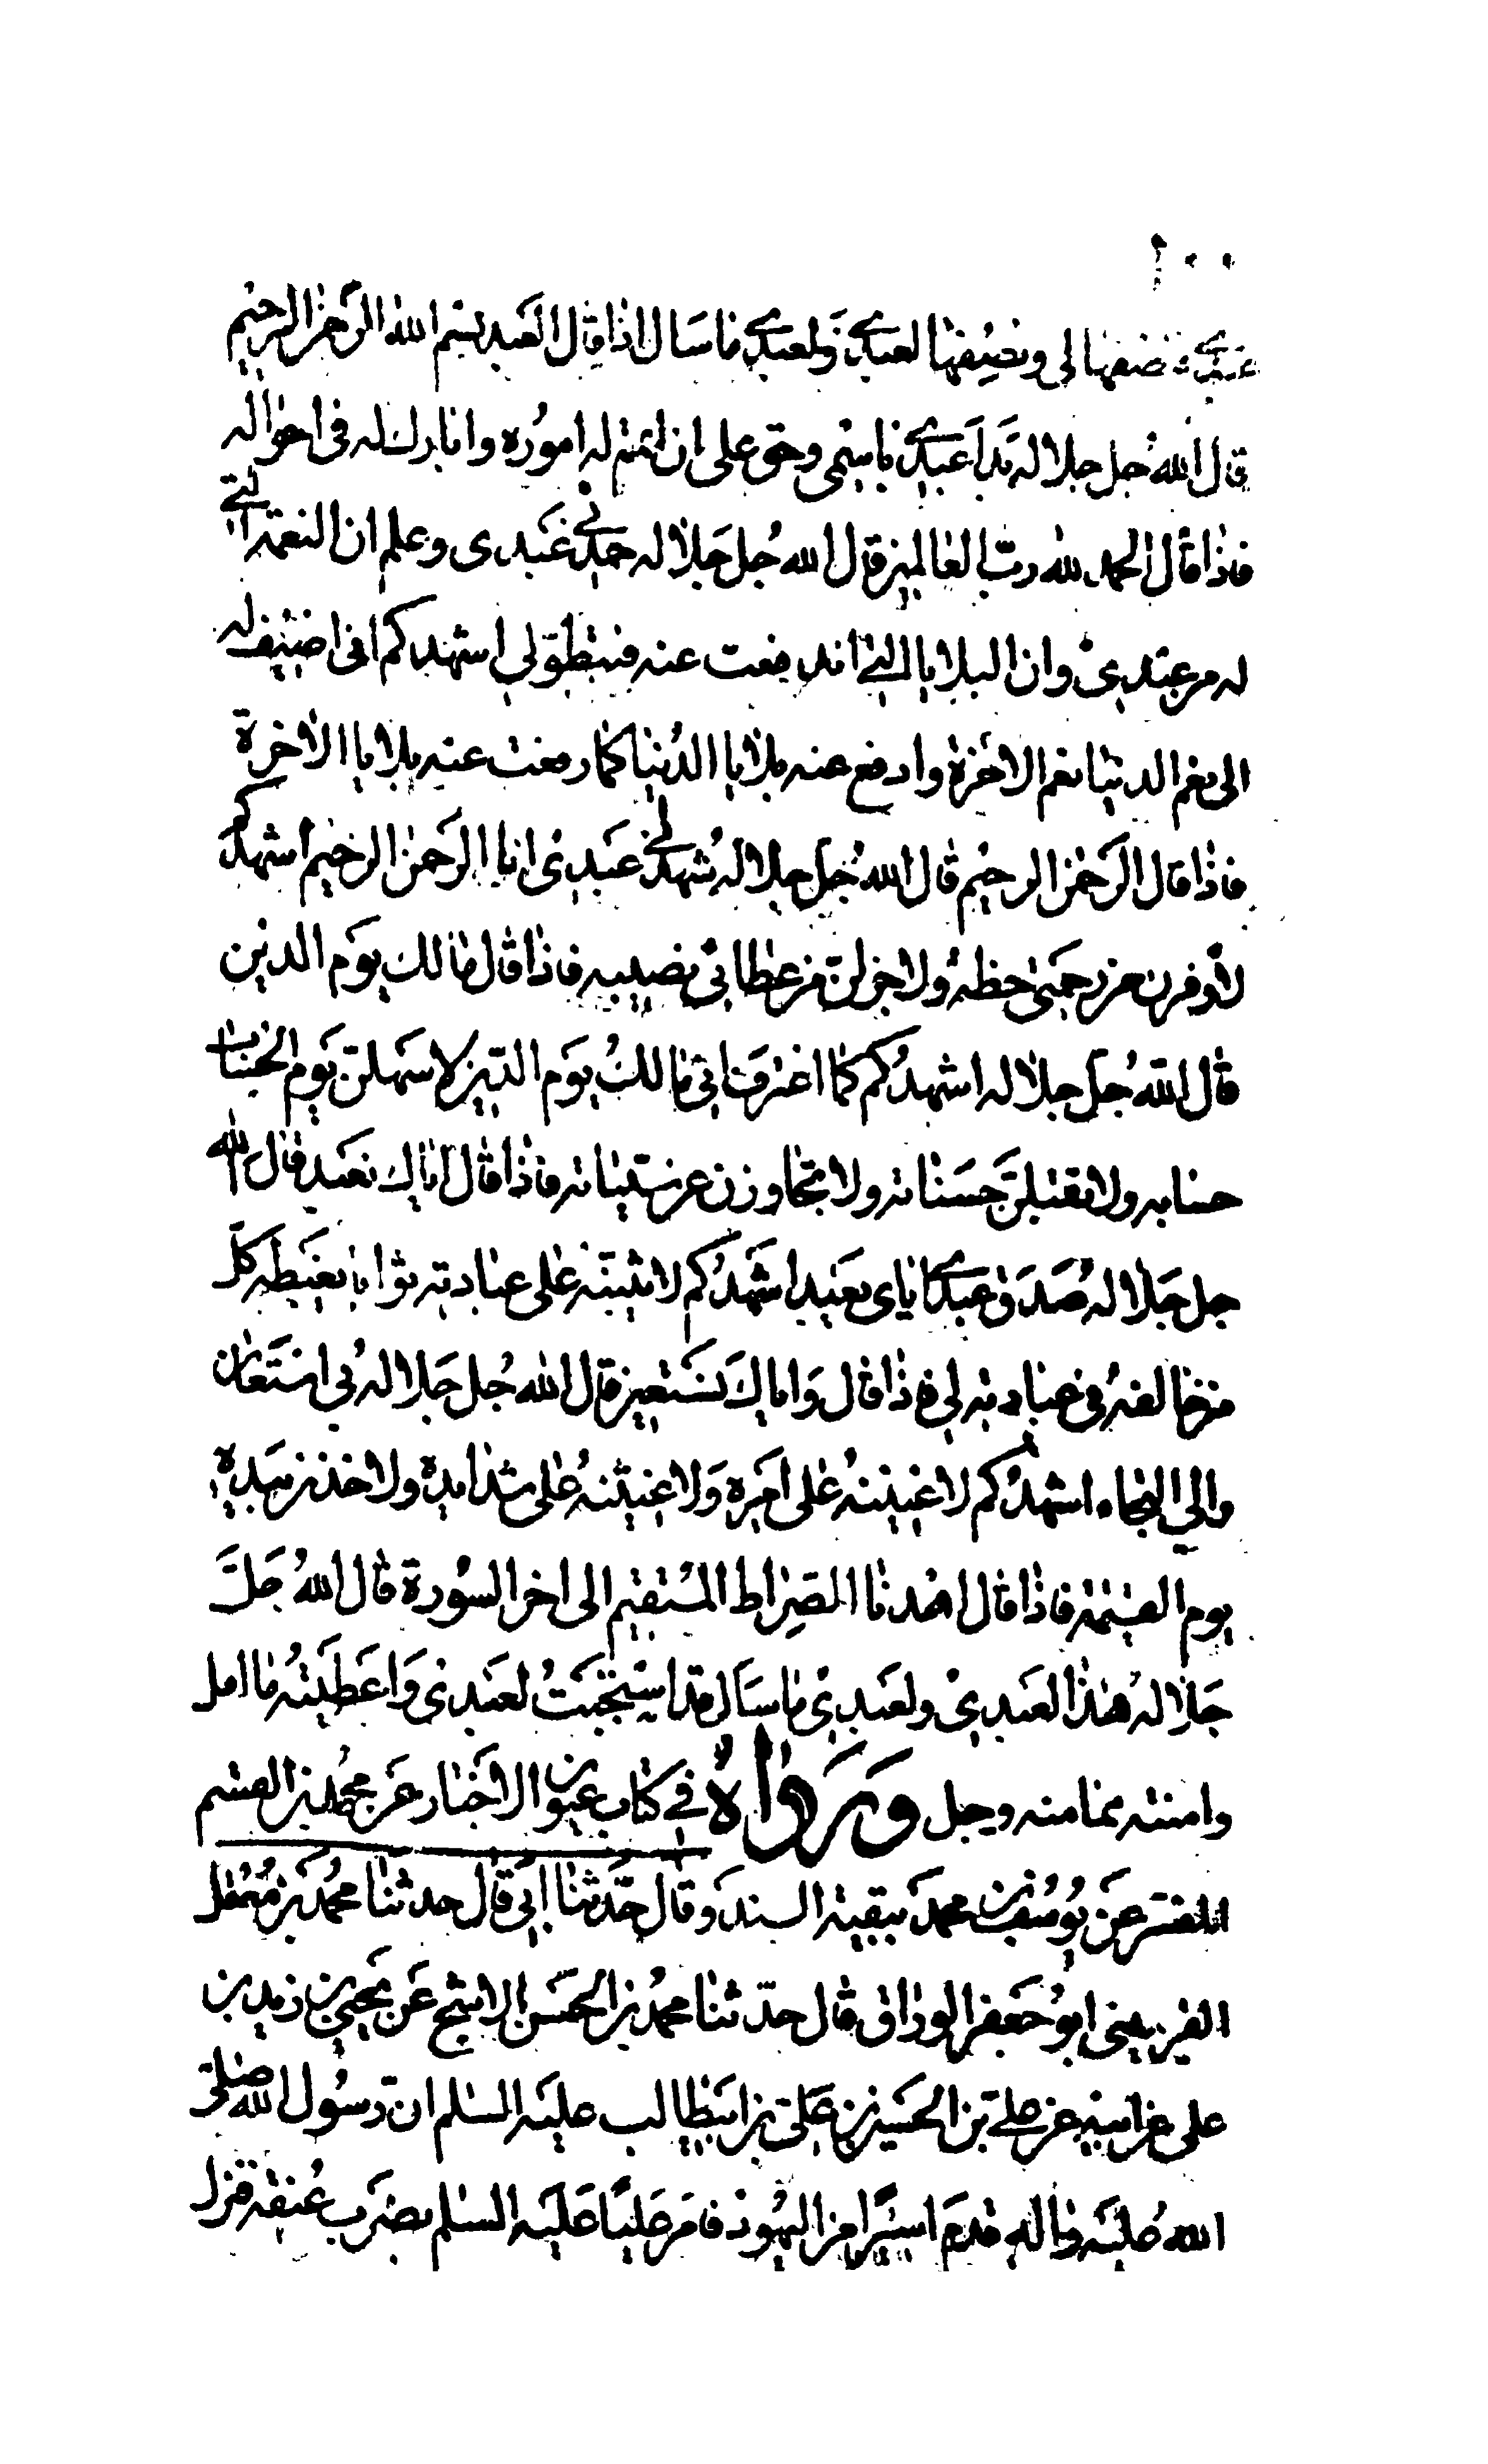 عبدي فنصفها لى ونصفها لعبدي ولعبدي ما سال اذا قال العبد بسم الله الرحمن الرحيم
قال الله جل جلاله بدا عبدي باسمى وحق على ان اتمم له اموره وابارك له فى احواله
فاذا قال الحمد لله رب العالمين قال الله جل جلاله حمدنى عبدى وعلم ان النعم التي
له من عندى وان البلايا التي اندفعت عنه فبتطولي اشهدكم انى اضيف له
الى نعم الدنيا نعم الاخرة وادفع عنه بلايا الدنيا كما دفعت عنه بلايا الاخرة
فاذا قال الرحمن الرحيم قال الله جل جلاله شهد لي عبدى انا الرحمن الرحيم اشهدكم
لاوفرن من رحمتى حظه ولاجزلن من عطائى نصيبه فاذا قال مالك يوم الدين
قال الله جل جلاله اشهدكم كما اعترف انى مالك يوم الدين لاسهلن يوم الحساب
حسابه ولاتقبلن حسناته ولاتجاوزن عن سيئاته فاذا قال اياك نعبد قال الله
جل جلاله صدق عبدي اياى يعبد اشهدكم لاثيبنه على عبادته ثوابا يغبطه كل
من خالفه فى عبادته لي فاذا قال واياك نستعين قال الله جل جلاله بى استعان
والي التجاء اشهدكم لاعيننه على امره ولاغيثنه على شدايده ولاخذن بيده
يوم القيمة فاذا قال اهدنا الصراط المستقيم الى اخر السورة قال الله جل
جلاله هذا لعبدى ولعبدى ما سال قد استجبت لعبدى واعطيته ما امل
وامنته مما منه وجل ورواه في كتاب عيون الاخبار عن محمد بن القسم
المفسر عن يوسف بن محمد ببقية السند وقال حدثنا ابى قال حدثنا محمد بن معقل
القرميسينى ابو جعفر الوراق قال حدثنا محمد بن الحسن الاشج عن يحيى بن زيد بن
على عن ابيه عن على بن الحسين بن على بن ابيطالب عليه السلم ان رسول الله صلى
الله عليه واله قدم اسيرا من اليهود فامر عليا عليه السلم بضرب عنقه فنزل